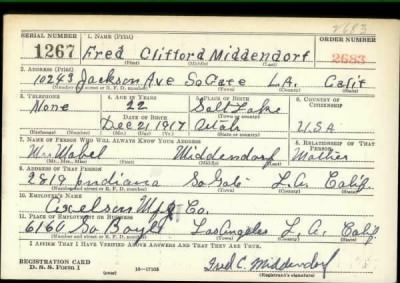 2683
SERIAL NUMBER 1. NAME (Print) ORDER NUMBER
1267 Fred Clifford Middendorf 2683
(First) (Middle) (Last)
2. ADDRESS (Print)
10243 Jackson Ave So Gate L.A. Calif
(Number and street or R. F. D. number) (Town) (County) (State)
3. TELEPHONE 4. AGE IN YEARS 5. PLACE OF BIRTH 6. COUNTRY OF CITIZENSHIP
None 22 Salt Lake
DATE OF BIRTH (Town or county)
Dec 21 1917 Utah U.S.A
(Exchange) (Number) (Mo.) (Day) (Yr.) (State or country)
7. NAME OF PERSON WHO WILL ALWAYS KNOW YOUR ADDRESS 8. RELATIONSHIP OF THAT PERSON
Mabel Middendorf Mother
(Mr., Mrs., Miss) (First) (Middle) (Last)
9. ADDRESS OF THAT PERSON
2819 Indiana So Gate L.A. Calif.
(Number and street or R. F. D. number) (Town) (County) (State)
10. EMPLOYER'S NAME
Axelson Mfg. Co.
11. PLACE OF EMPLOYMENT OR BUSINESS
6160 So Boyle Los Angeles L.A. Calif.
(Number and street or R. F. D. number) (Town) (County) (State)
I AFFIRM THAT I HAVE VERIFIED ABOVE ANSWERS AND THAT THEY ARE TRUE.
REGISTRATION CARD
D. S. S. Form 1 (over) 16—17105 Fred C. Middendorf
(Registrant's signature)